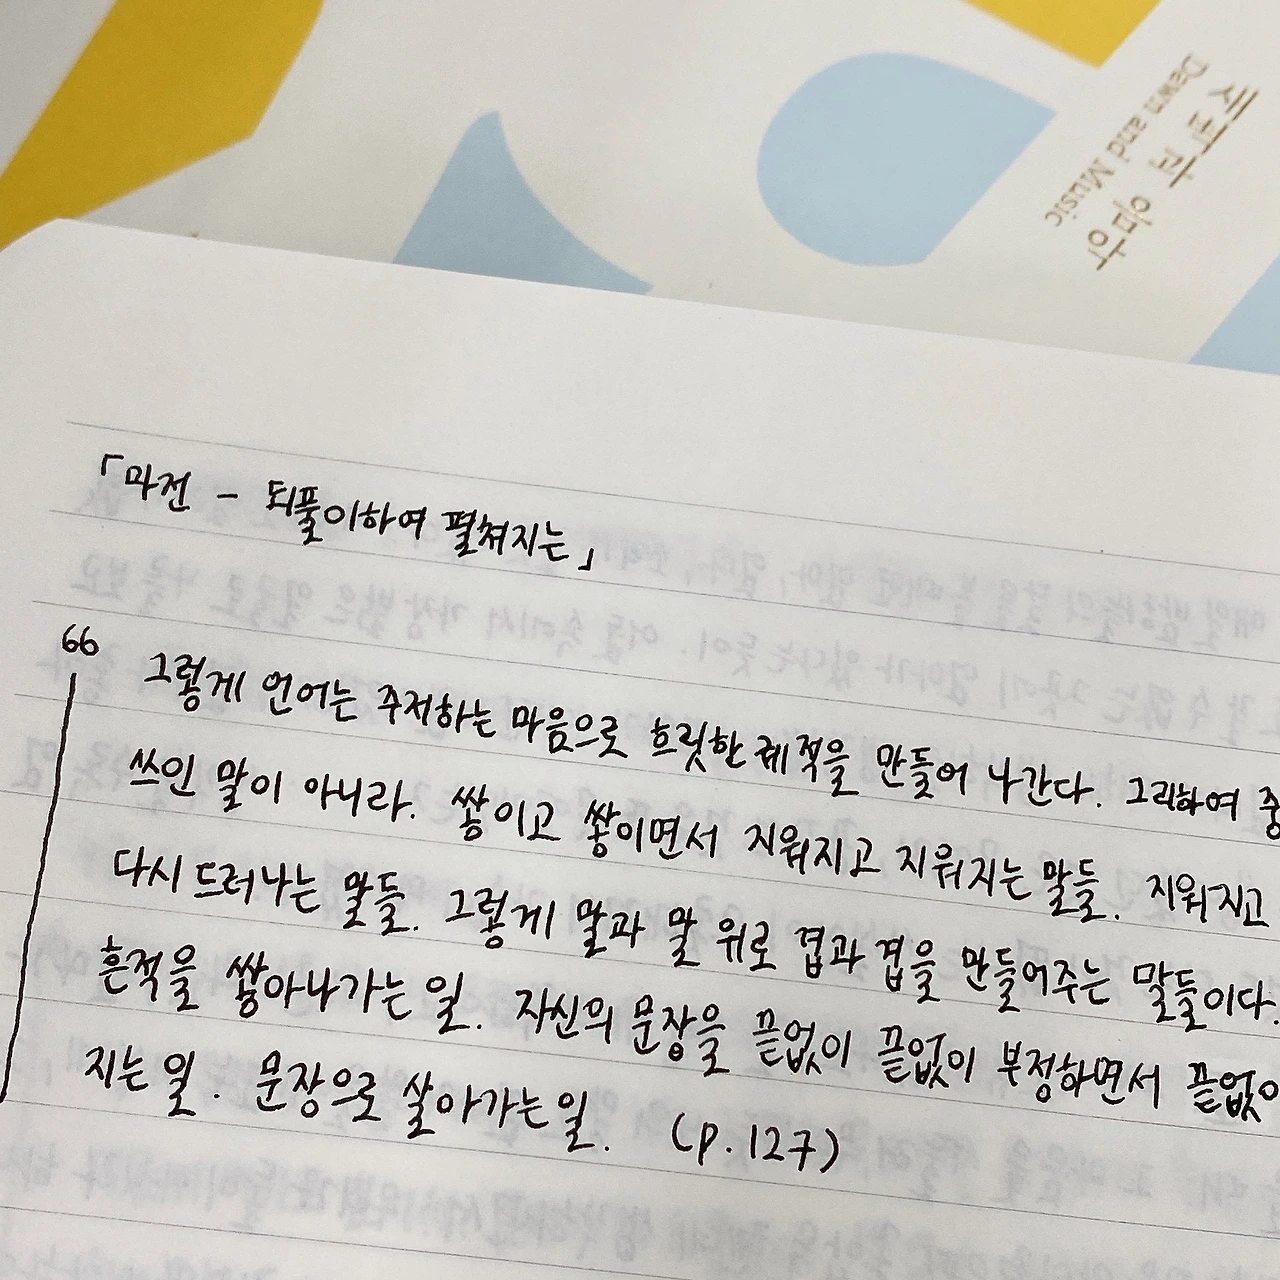 새벽과 음악
Dawn and Music
「마전 - 되풀이하여 펼쳐지는」
66
그렇게 언어는 주저하는 마음으로 흐릿한 궤적을 만들어 나간다. 그리하여 중
쓰인 말이 아니라. 쌓이고 쌓이면서 지워지고 지워지는 말들. 지워지고
다시 드러나는 말들. 그렇게 말과 말 위로 겹과 겹을 만들어주는 말들이다.
흔적을 쌓아나가는 일. 자신의 문장을 끝없이 끝없이 부정하면서 끝없이
지는 일. 문장으로 살아가는 일. (p.127)